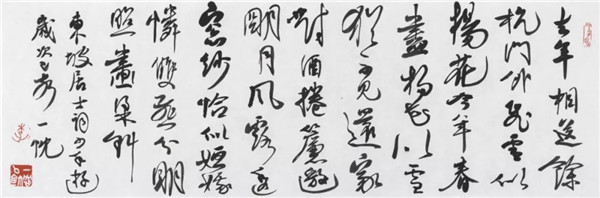 去年相送餘
杭門外飛雪似
楊花今年春
盡楊花似雪
猶不見還家
對酒捲簾邀
明月風露透
窗紗恰似姮娥
憐雙燕分明
照畫梁斜
東坡居士詞少年遊
歲次